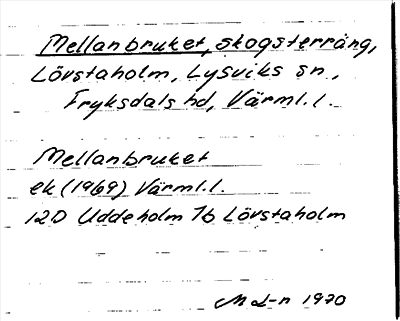 Mellanbruket, skogsterräng,
Lövstaholm, Lysviks sn.,
Fryksdals hd, Värml.l.
Mellanbruket
ek (1969) Värml.l.
12D Uddeholm 7b Lövstaholm
M L-n 1970